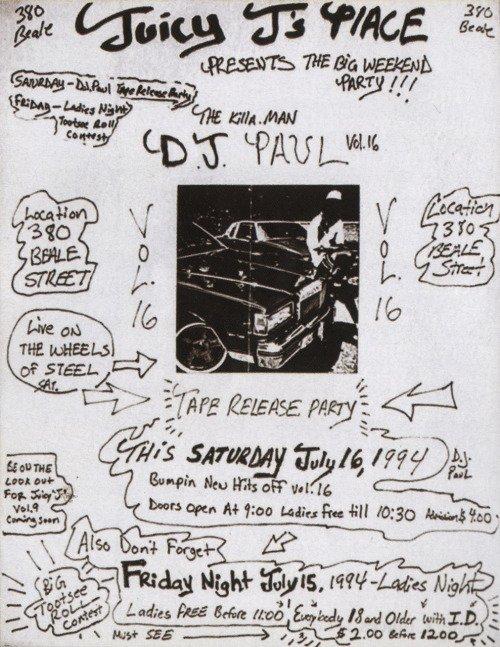 380
Beale
Juicy J's PlACE
380
Beale
PRESENTS THE BIG WEEKEND
PARTY!!!
SATURDAY - D.J. Paul Tape Release Party
FRiDAY - Ladies Night
Tootsee Roll
Contest
THE Killa.MAN
D.J. PAUL Vol.16
Location
380
BEALE
STREET
VOL.16
VOL.16
Location
380
BEALE
Street
Live ON
THE WHEELS
OF STEEL
SAT.
TAPE RELEASE PARTY
THiS SATURDAY July 16, 1994
D.J.
PAUL
Bumpin New Hits off vol.16
Doors Open At 9:00 Ladies Free till 10:30 $4.00
BE ON THE
LOOK OUT
FOR Juicy "J's"
Vol.9
Coming Soon
Also Don't Forget
FRiDAY Night July 15, 1994 - Ladies Night
BIG
Tootsee
ROLL
Contest
Ladies FREE Before 11:00
Everybody 18 and Older with I.D.
$2.00 Before 1200
Must SEE